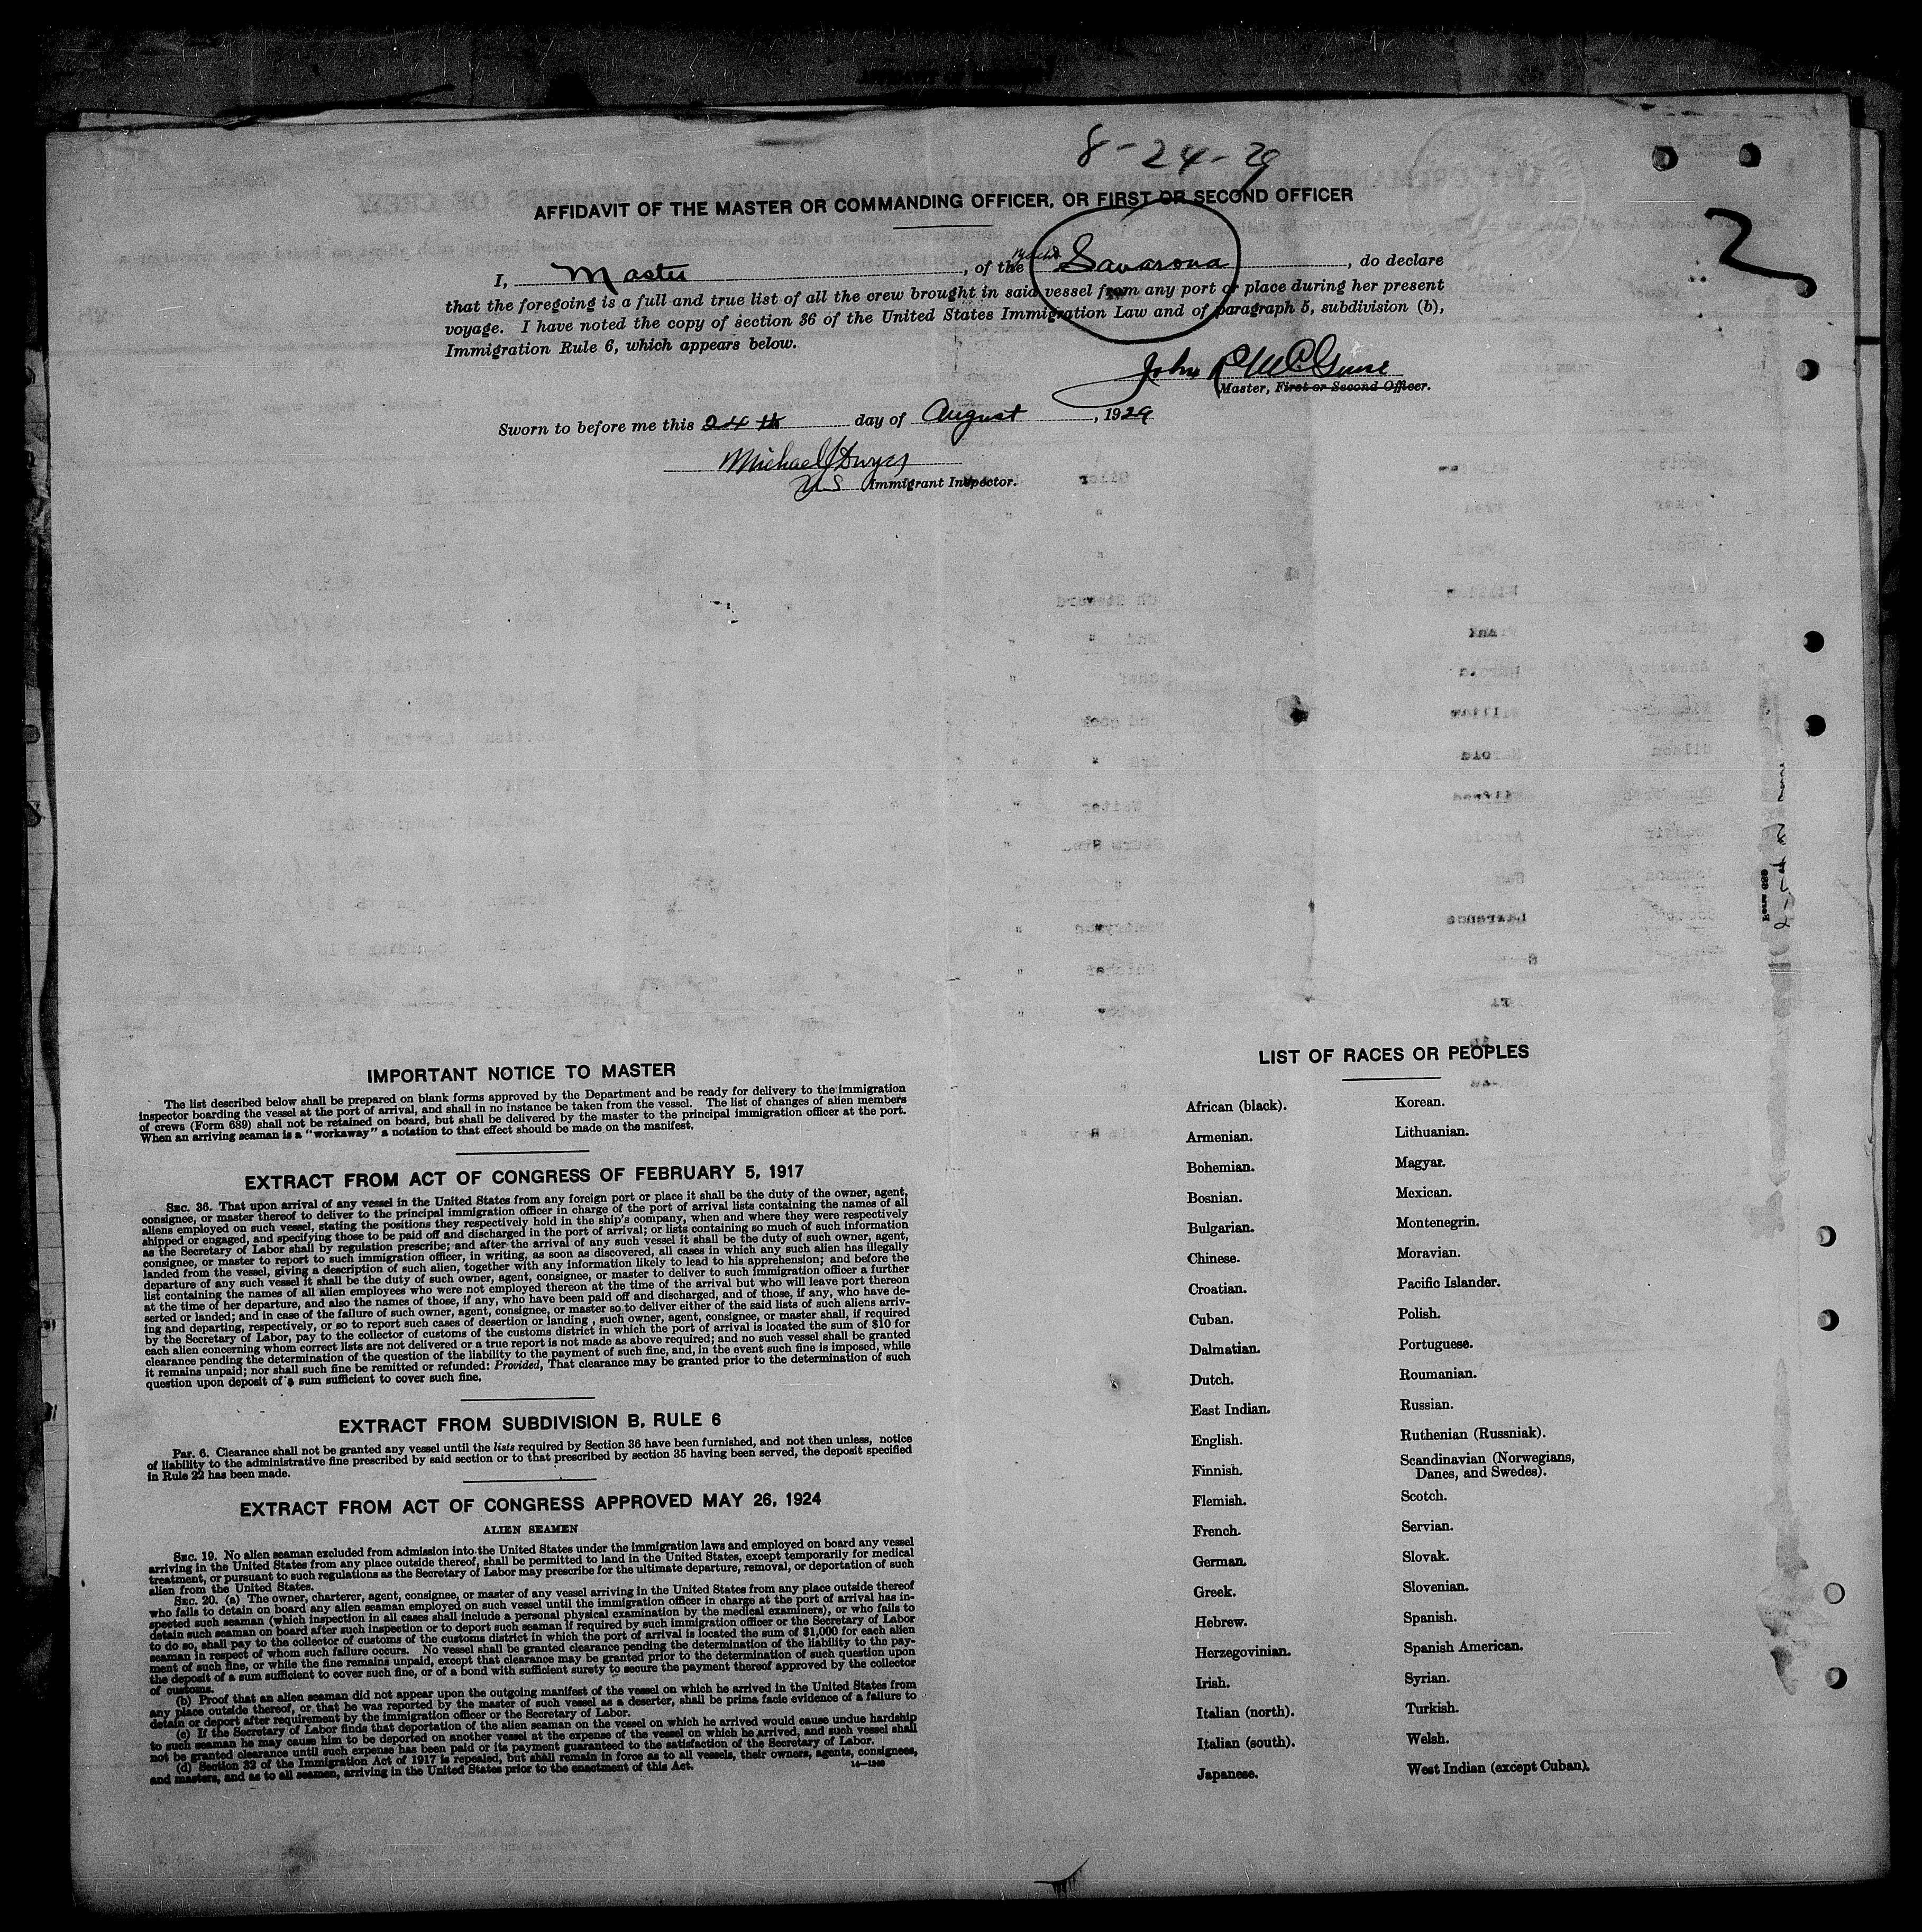 8-24-29
AFFIDAVIT OF THE MASTER OR COMMANDING OFFICER, OR FIRST OR SECOND OFFICER
I, Master, of the Yacht Savarona, do declare
that the foregoing is a full and true list of all the crew brought in said vessel from any port or place during her present
voyage. I have noted the copy of section 36 of the United States Immigration Law and of paragraph 5, subdivision (b),
Immigration Rule 6, which appears below.
John
Master, First or Second Officer.
Sworn to before me this 24th day of August, 1929
Michael J Dwyer
US Immigrant Inspector.
Form 689
IMPORTANT NOTICE TO MASTER
The list described below shall be prepared on blank forms approved by the Department and be ready for delivery to the immigration
inspector boarding the vessel at the port of arrival, and shall in no instance be taken from the vessel. The list of changes of alien members
of crews (Form 689) shall not be retained on board, but shall be delivered by the master to the principal immigration officer at the port.
When an arriving seaman is a "workaway" a notation to that effect should be made on the manifest.
EXTRACT FROM ACT OF CONGRESS OF FEBRUARY 5, 1917
SEC. 36. That upon arrival of any vessel in the United States from any foreign port or place it shall be the duty of the owner, agent,
consignee, or master thereof to deliver to the principal immigration officer in charge of the port of arrival lists containing the names of all
aliens employed on such vessel, stating the positions they respectively hold in the ship's company, when and where they were respectively
shipped or engaged, and specifying those to be paid off and discharged in the port of arrival; or lists containing so much of such information
as the Secretary of Labor shall by regulation prescribe; and after the arrival of any such vessel it shall be the duty of such owner, agent,
consignee, or master to report to such immigration officer, in writing, as soon as discovered, all cases in which any such alien has illegally
landed from the vessel, giving a description of such alien, together with any information likely to lead to his apprehension; and before the
departure of any such vessel it shall be the duty of such owner, agent, consignee, or master to deliver to such immigration officer a further
list containing the names of all alien employees who were not employed thereon at the time of the arrival but who will leave port thereon
at the time of her departure, and also the names of those, if any, who have been paid off and discharged, and of those, if any, who have de-
serted or landed; and in case of the failure of such owner, agent, consignee, or master so to deliver either of the said lists of such aliens arriv-
ing and departing, respectively, or so to report such cases of desertion or landing, such owner, agent, consignee, or master shall, if required
by the Secretary of Labor, pay to the collector of customs of the customs district in which the port of arrival is located the sum of $10 for
each alien concerning whom correct lists are not delivered or a true report is not made as above required; and no such vessel shall be granted
clearance pending the determination of the question of the liability to the payment of such fine, and, in the event such fine is imposed, while
it remains unpaid; nor shall such fine be remitted or refunded: Provided, That clearance may be granted prior to the determination of such
question upon deposit of a sum sufficient to cover such fine.
EXTRACT FROM SUBDIVISION B, RULE 6
Par. 6. Clearance shall not be granted any vessel until the lists required by Section 36 have been furnished, and not then unless, notice
of liability to the administrative fine prescribed by said section or to that prescribed by section 35 having been served, the deposit specified
in Rule 22 has been made.
EXTRACT FROM ACT OF CONGRESS APPROVED MAY 26, 1924
ALIEN SEAMEN
SEC. 19. No alien seaman excluded from admission into the United States under the immigration laws and employed on board any vessel
arriving in the United States from any place outside thereof, shall be permitted to land in the United States, except temporarily for medical
treatment, or pursuant to such regulations as the Secretary of Labor may prescribe for the ultimate departure, removal, or deportation of such
alien from the United States.
SEC. 20. (a) The owner, charterer, agent, consignee, or master of any vessel arriving in the United States from any place outside thereof
who fails to detain on board any alien seaman employed on such vessel until the immigration officer in charge at the port of arrival has in-
spected such seaman (which inspection in all cases shall include a personal physical examination by the medical examiners), or who fails to
detain such seaman on board after such inspection or to deport such seaman if required by such immigration officer or the Secretary of Labor
to do so, shall pay to the collector of customs of the customs district in which the port of arrival is located the sum of $1,000 for each alien
seaman in respect of whom such failure occurs. No vessel shall be granted clearance pending the determination of the liability to the pay-
ment of such fine, or while the fine remains unpaid, except that clearance may be granted prior to the determination of such question upon
the deposit of a sum sufficient to cover such fine, or of a bond with sufficient surety to secure the payment thereof approved by the collector
of customs.
(b) Proof that an alien seaman did not appear upon the outgoing manifest of the vessel on which he arrived in the United States from
any place outside thereof, or that he was reported by the master of such vessel as a deserter, shall be prima facie evidence of a failure to
detain or deport after requirement by the immigration officer or the Secretary of Labor.
(c) If the Secretary of Labor finds that deportation of the alien seaman on the vessel on which he arrived would cause undue hardship
to such seaman he may cause him to be deported on another vessel at the expense of the vessel on which he arrived, and such vessel shall
not be granted clearance until such expense has been paid or its payment guaranteed to the satisfaction of the Secretary of Labor.
(d) Section 32 of the Immigration Act of 1917 is repealed, but shall remain in force as to all vessels, their owners, agents, consignees,
and masters, and as to all seamen, arriving in the United States prior to the enactment of this Act.
LIST OF RACES OR PEOPLES
African (black).
Armenian.
Bohemian.
Bosnian.
Bulgarian.
Chinese.
Croatian.
Cuban.
Dalmatian.
Dutch.
East Indian.
English.
Finnish.
Flemish.
French.
German.
Greek.
Hebrew.
Herzegovinian.
Irish.
Italian (north).
Italian (south).
Japanese.
Korean.
Lithuanian.
Magyar.
Mexican.
Montenegrin.
Moravian.
Pacific Islander.
Polish.
Portuguese.
Roumanian.
Russian.
Ruthenian (Russniak).
Scandinavian (Norwegians,
Danes, and Swedes).
Scotch.
Servian.
Slovak.
Slovenian.
Spanish.
Spanish American.
Syrian.
Turkish.
Welsh.
West Indian (except Cuban).